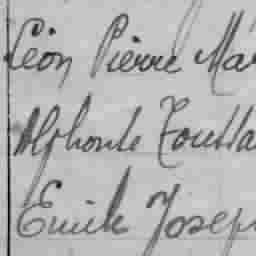 Léon Pierre Mar
Alphonse Toussa
Emile Joseph